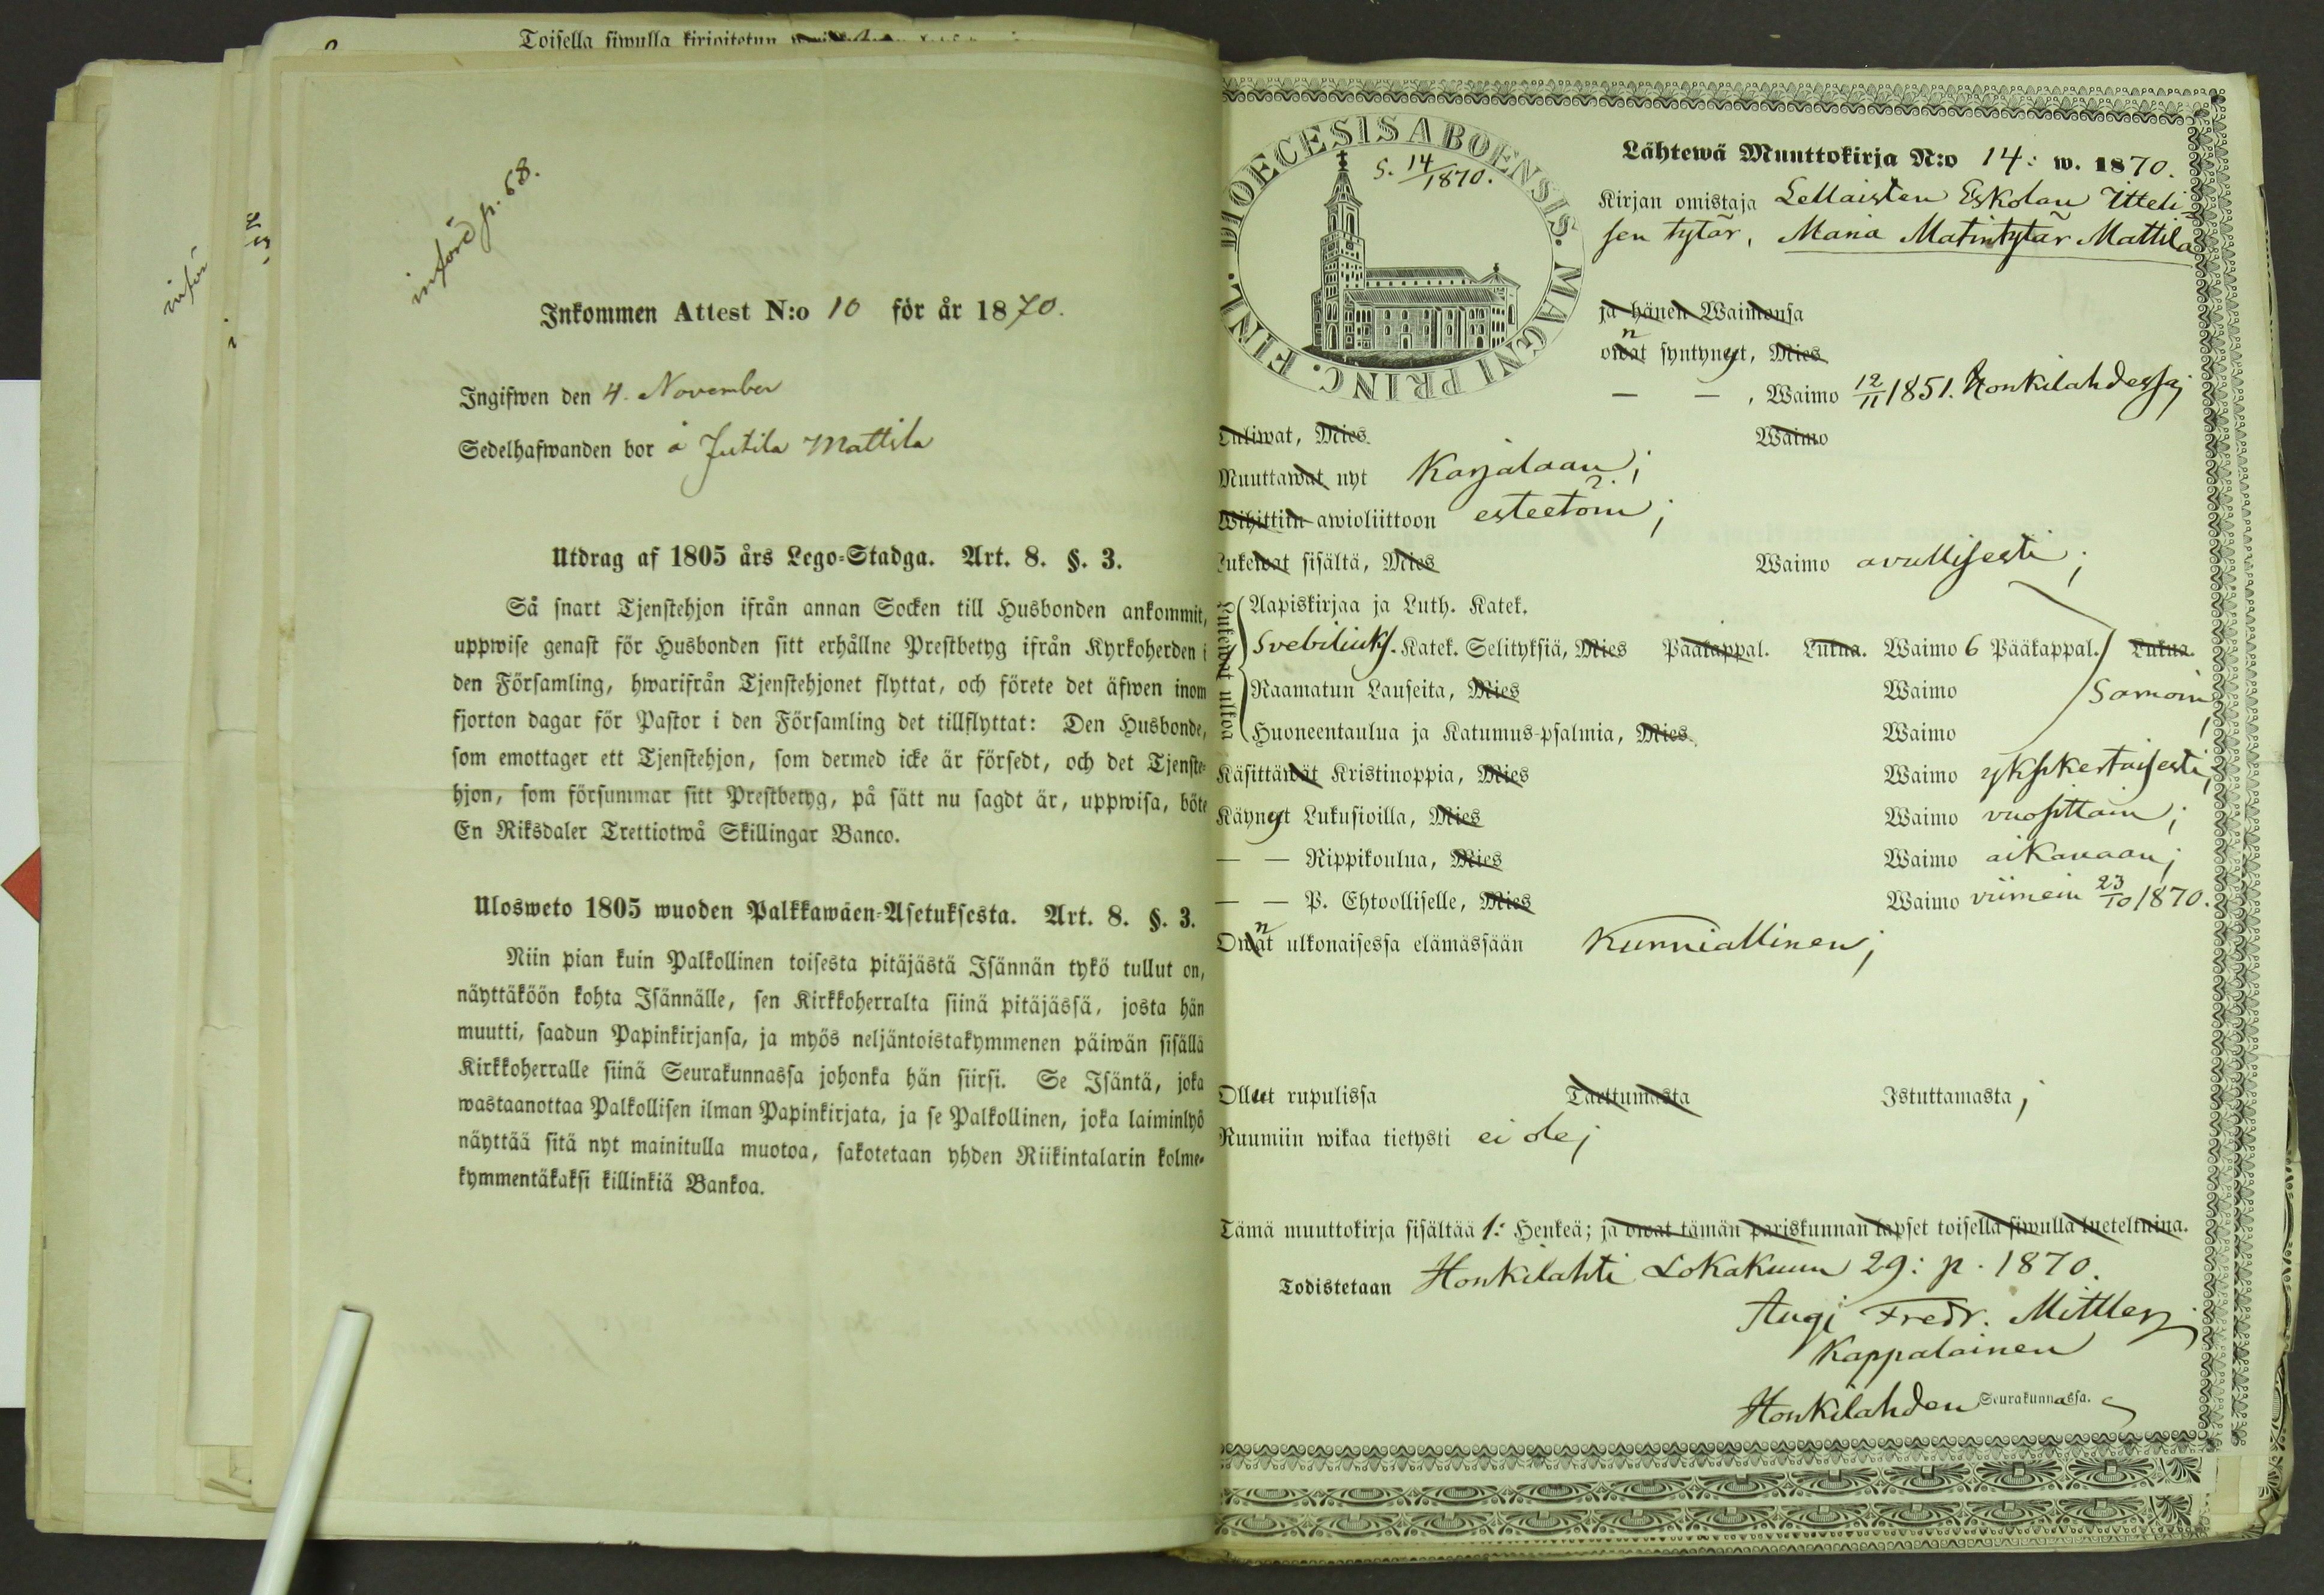 Toisella siwulla kirjoitetun
införd p. 68.
Inkommen Attest N:o 10 för år 1870.
Ingifwen den 4. November
Sedelhafwanden bor å Jutila Mattila
Utdrag af 1805 års Lego-Stadga. Art. 8. §. 3.
Så snart Tjenstehjon ifrån annan Socken till Husbonden ankommit,
uppwise genast för Husbonden sitt erhållne Prestbetyg ifrån Kyrkoherden i
den Församling, hwarifrån Tjenstehjonet flyttat, och förete det äfwen inom
fjorton dagar för Pastor i den Församling det tillflyttat: Den Husbonde,
som emottager ett Tjenstehjon, som dermed icke är försedt, och det Tjenste-
hjon, som försummar sitt Prestbetyg, på sätt nu sagdt är, uppwisa, böte
En Riksdaler Trettiotwå Skillingar Banco.
Ulosweto 1805 wuoden Palkkawäen-Asetuksesta. Art. 8. §. 3.
Niin pian kuin Palkollinen toisesta pitäjästä Isännän tykö tullut on,
näyttäköön kohta Isännälle, sen Kirkkoherralta siinä pitäjässä, josta hän
muutti, saadun Papinkirjansa, ja myös neljäntoistakymmenen päiwän sisällä
Kirkkoherralle siinä Seurakunnassa johonka hän siirsi. Se Isäntä, joka
wastaanottaa Palkollisen ilman Papinkirjata, ja se Palkollinen, joka laiminlyö
näyttää sitä nyt mainitulla muotoa, sakotetaan yhden Riikintalarin kolme-
kymmentäkaksi killinkiä Bankoa.
DIOECESIS ABOENSIS. MAGNI PRINC. FINL.
S. 14/1870.
Lähtewä Muuttokirja N:o 14: w. 1870.
Kirjan omistaja Lellaisten Eskolan Itteli-
sen tytär, Maria Matintytär Mattila
ja hänen Waimonsa
n
owat syntynyt, Mies
— — , Waimo 12/11 1851. Honkilahdessa;
Tuliwat, Mies Waimo
Muuttawat nyt Karjalaan;
Wihittiin awioliittoon esteetöin;
Lukewat sisältä, Mies Waimo avullisesti;
Lukewat ulkoa
Aapiskirjaa ja Luth. Katek.
Svebiliuks. Katek. Selityksiä, Mies Pääkappal. Lukua. Waimo 6 Pääkappal. Lukua.
Raamatun Lauseita, Mies Waimo samoin,
Huoneentaulua ja Katumus-psalmia, Mies Waimo
Käsittäwät Kristinoppia, Mies Waimo yksikertaisesti,
Käynyt Lukusioilla, Mies Waimo vuosittain;
— — Rippikoulua, Mies Waimo aikanaan;
— — P. Ehtoolliselle, Mies Waimo viimein 23/10 1870.
n
Owat ulkonaisessa elämässään Kunniallinen;
Ollut rupulissa Tarttumasta Istuttamasta;
Ruumiin wikaa tietysti ei ole;
Tämä muuttokirja sisältää 1: Henkeä; ja owat tämän pariskunnan lapset toisella siwulla lueteltuina.
Todistetaan Honkilahti Lokakuun 29: p. 1870.
Fredr. Mittler
Kappalainen
Honkilahden Seurakunnassa.